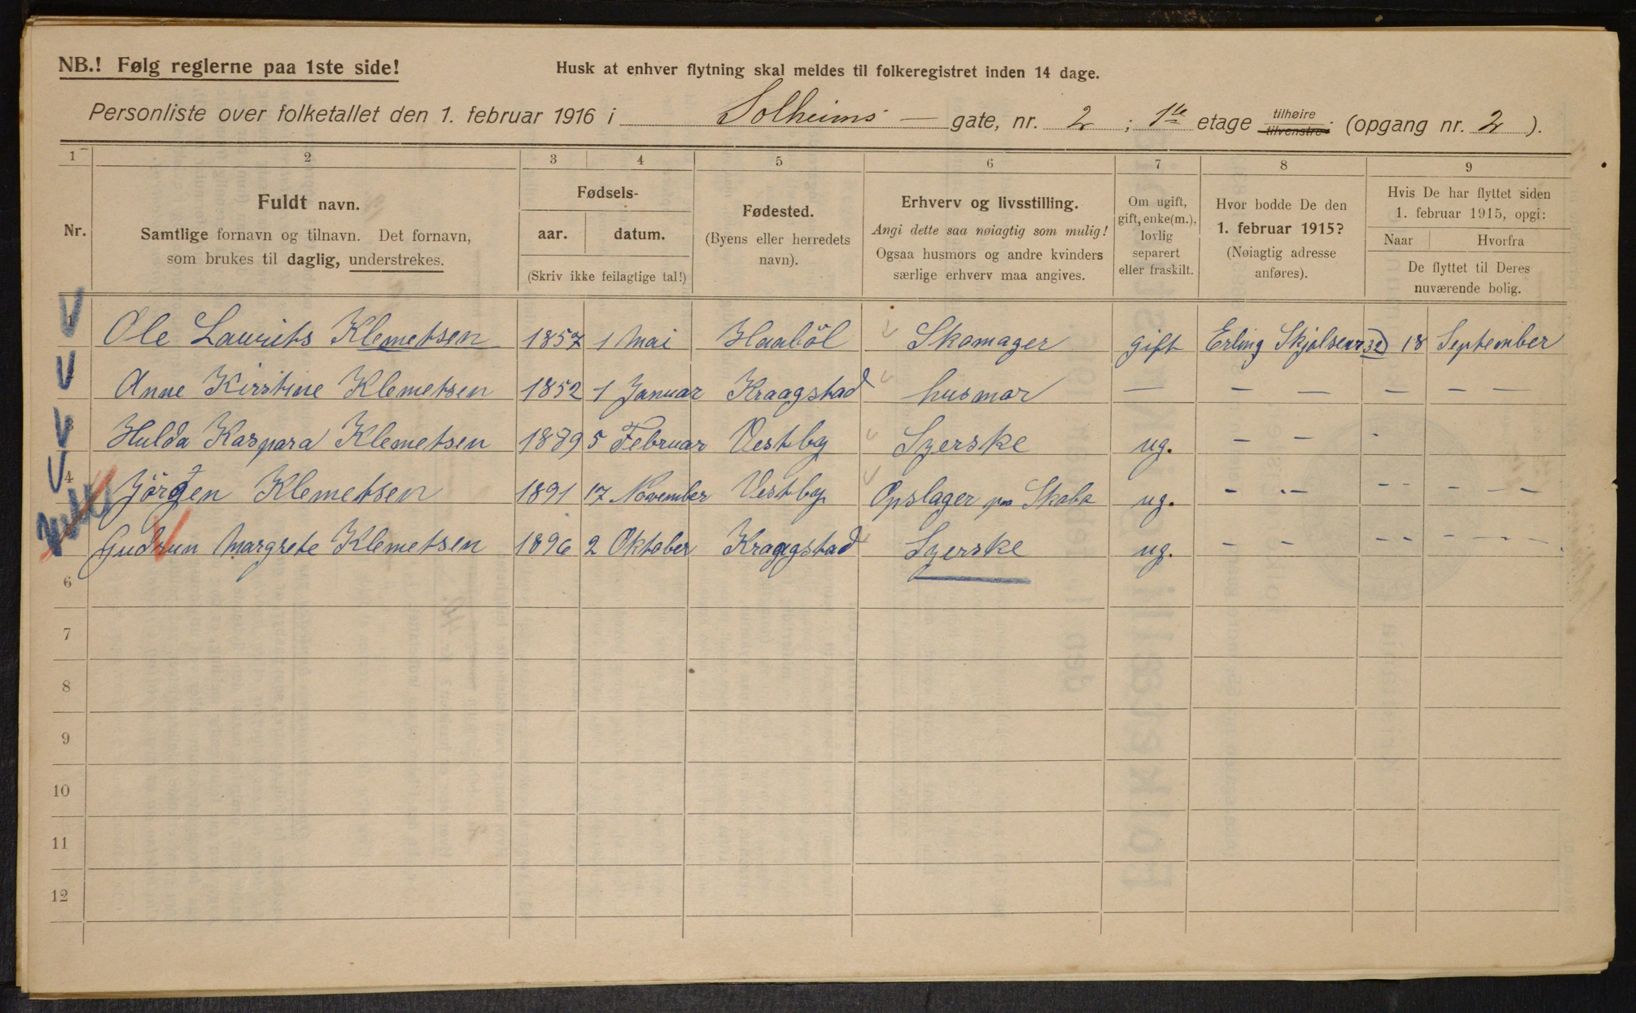 NB.! Følg reglerne paa 1ste side!
Husk at enhver flytning skal meldes til folkeregistret inden 14 dage.
Personliste over folketallet den 1. februar 1916 i Solheims — gate, nr. 2 ; 1ste etage tilhøire tilvenstre. (opgang nr. 2 ).
1 2 3 4 5 6 7 8 9
Nr.
Fuldt navn.
Samtlige fornavn og tilnavn. Det fornavn,
som brukes til daglig, understrekes.
Fødsels-
aar. datum.
(Skriv ikke feilagtige tal!)
Fødested.
(Byens eller herredets
navn).
Erhverv og livsstilling.
Angi dette saa nøiagtig som mulig!
Ogsaa husmors og andre kvinders
særlige erhverv maa angives.
Om ugift,
gift, enke(m.),
lovlig
separert
eller fraskilt.
Hvor bodde De den
1. februar 1915?
(Nøiagtig adresse
anføres).
Hvis De har flyttet siden
1. februar 1915, opgi:
Naar Hvorfra
De flyttet til Deres
nuværende bolig.
Ole Laurits Klemetsen 1857 1 Mai Haaböl Skomager gift Erling Skjalsens 32 18 September
Anne Kirstine Klemetsen 1852 1 Januar Kraagstad husmor — — — — — —
3 Hulda Kaspara Klemetsen 1889 5 Februar Vestby Syerske ug. — — -
4 Jörgen Klemetsen 1891 17 November Vestby Opslager pa Skabs ug. - -- -- - - -
Gudrun Margrete Klemetsen 1896 2 Oktober Kraagstad Syerske ug. - - -- - - - -
6
7
8
9
10
11
12